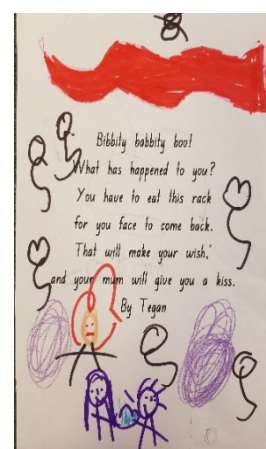 Bibbity babbity boo!
What has happened to you?
You have to eat this rack
for you face to come back.
That will make your wish,'
and your mum will give you a kiss.
By Tegan